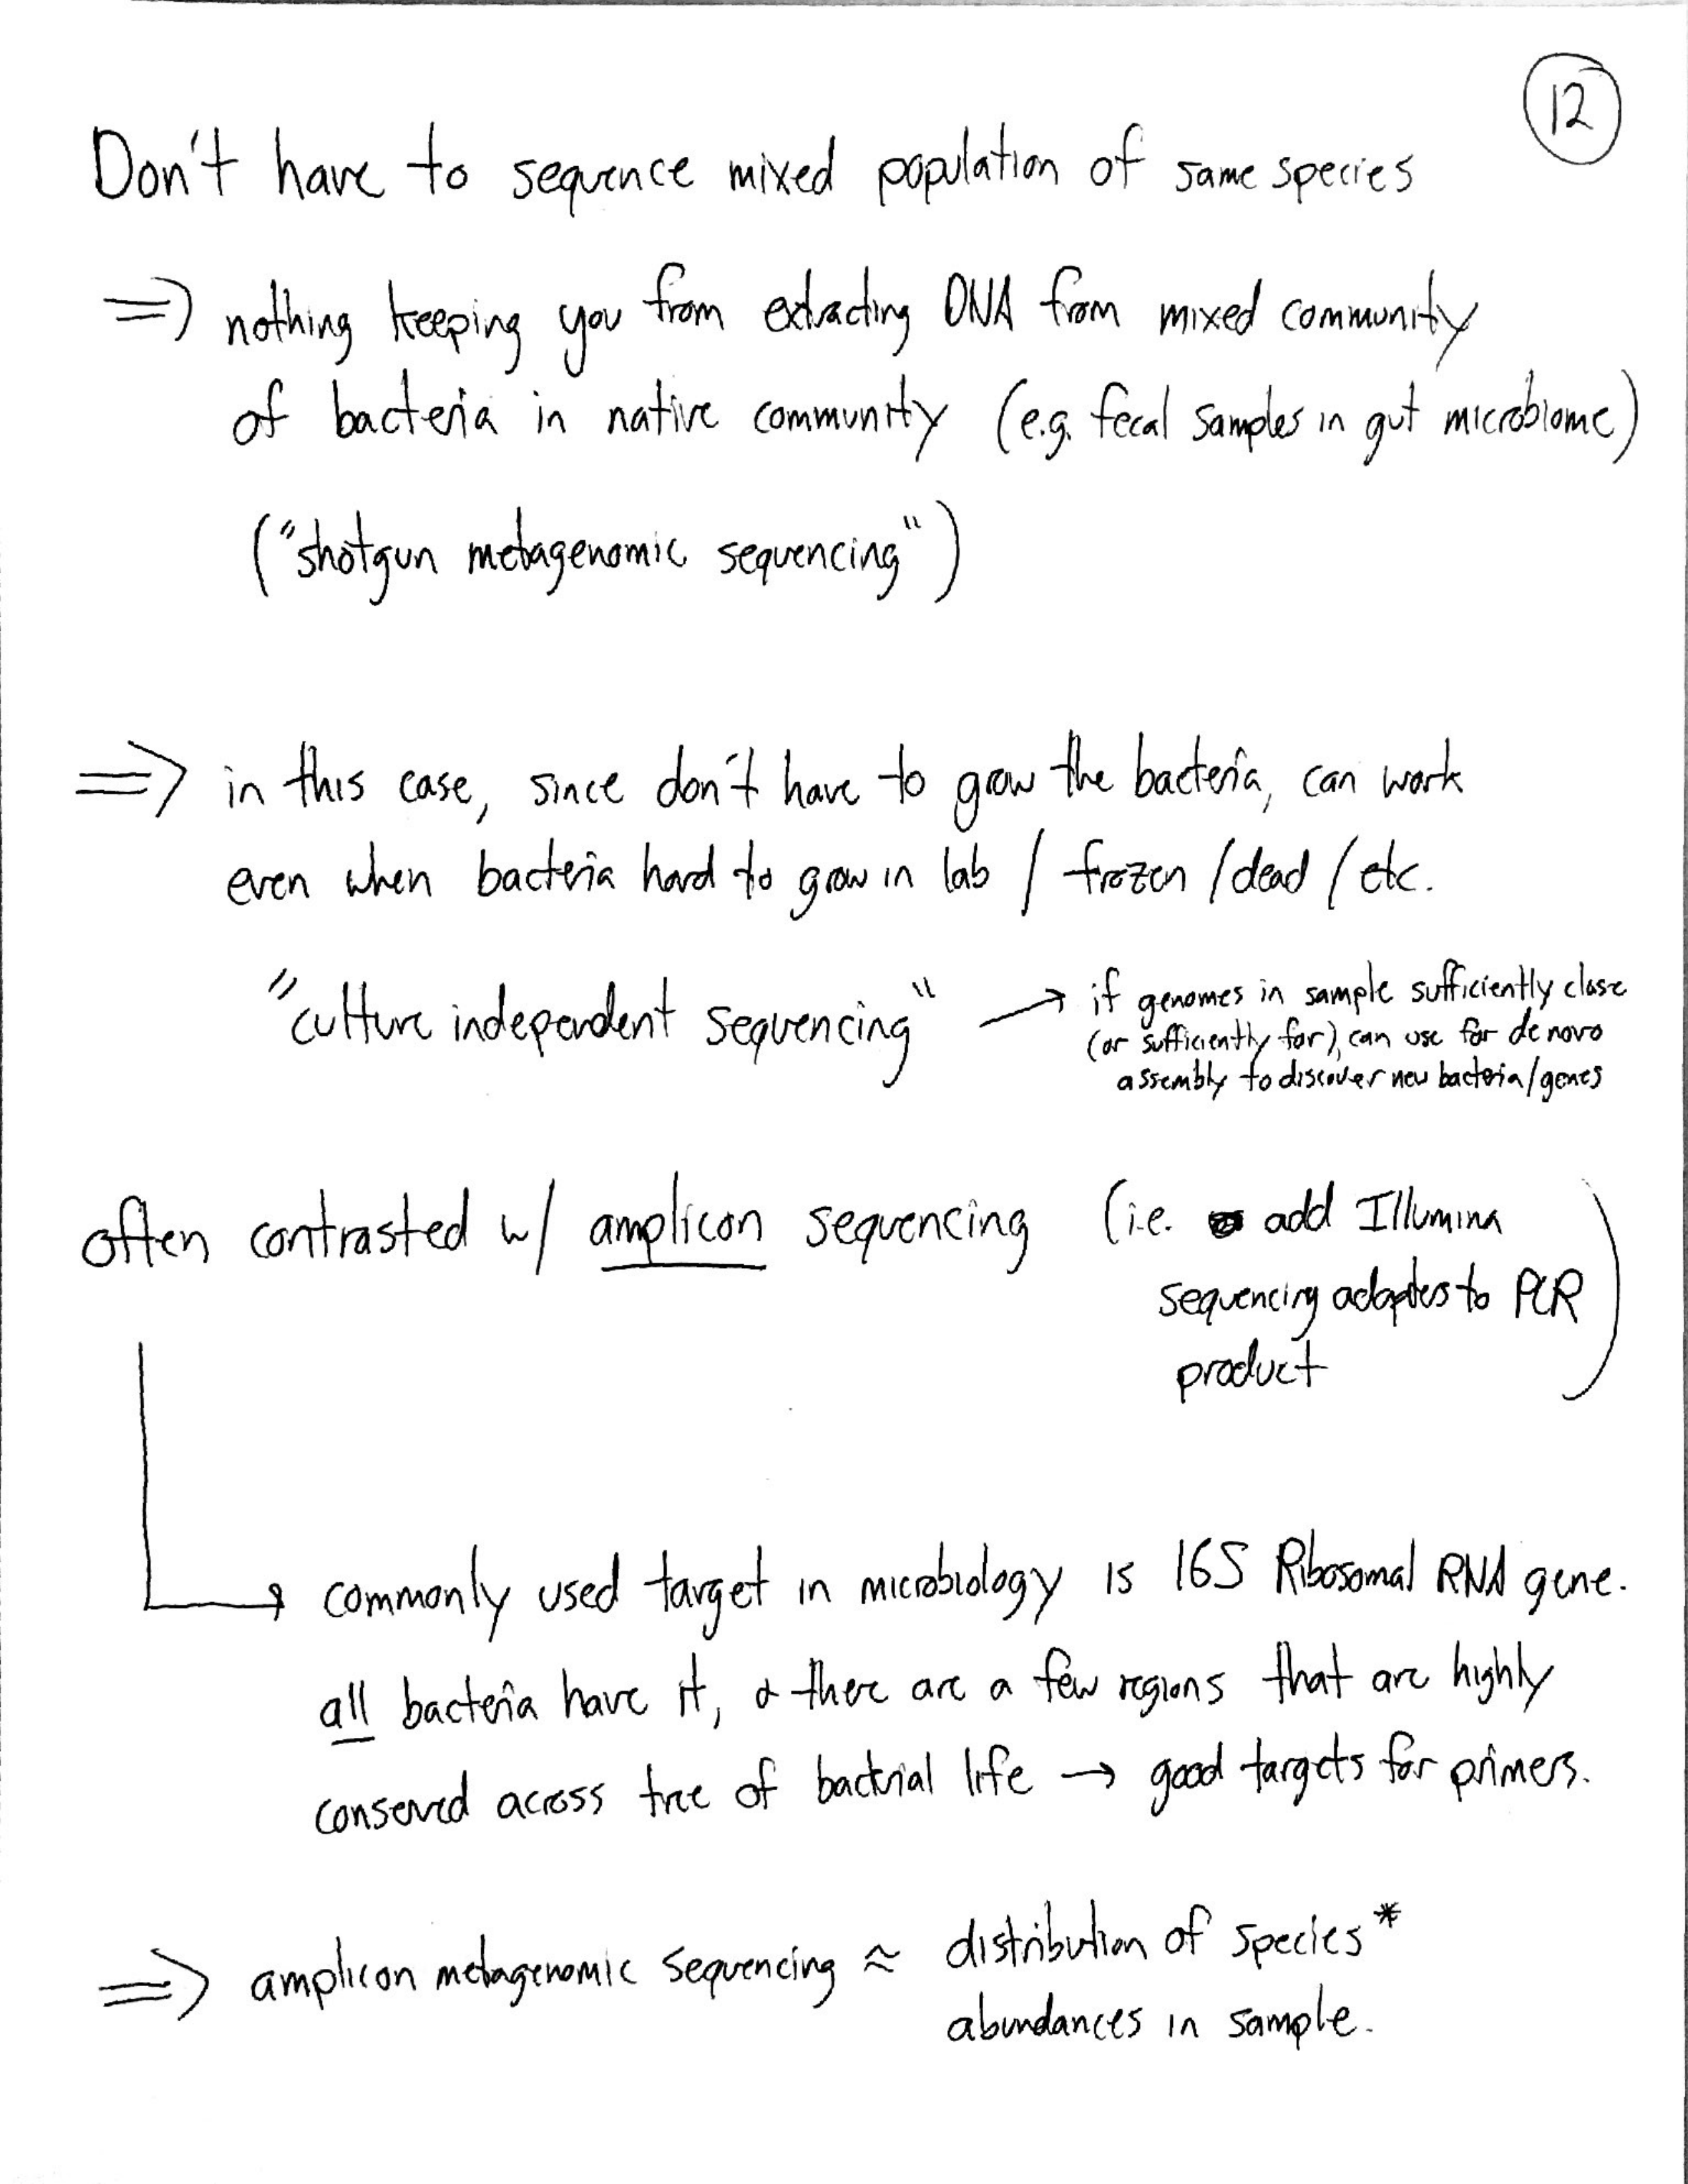 12
Don't have to sequence mixed population of same species
=> nothing keeping you from extracting DNA from mixed community
of bacteria in native community (e.g. fecal samples in gut microbiome)
("shotgun metagenomic sequencing")
=> in this case, since don't have to grow the bacteria, can work
even when bacteria hard to grow in lab / frozen / dead / etc.
"culture independent sequencing" → if genomes in sample sufficiently close
(or sufficiently far), can use for de novo
assembly to discover new bacteria/genes
often contrasted w/ amplicon sequencing (i.e. add Illumina
sequencing adapters to PCR
product)
commonly used target in microbiology is 16S Ribosomal RNA gene.
all bacteria have it, & there are a few regions that are highly
conserved across tree of bacterial life → good targets for primers.
=> amplicon metagenomic sequencing ≈ distribution of species*
abundances in sample.